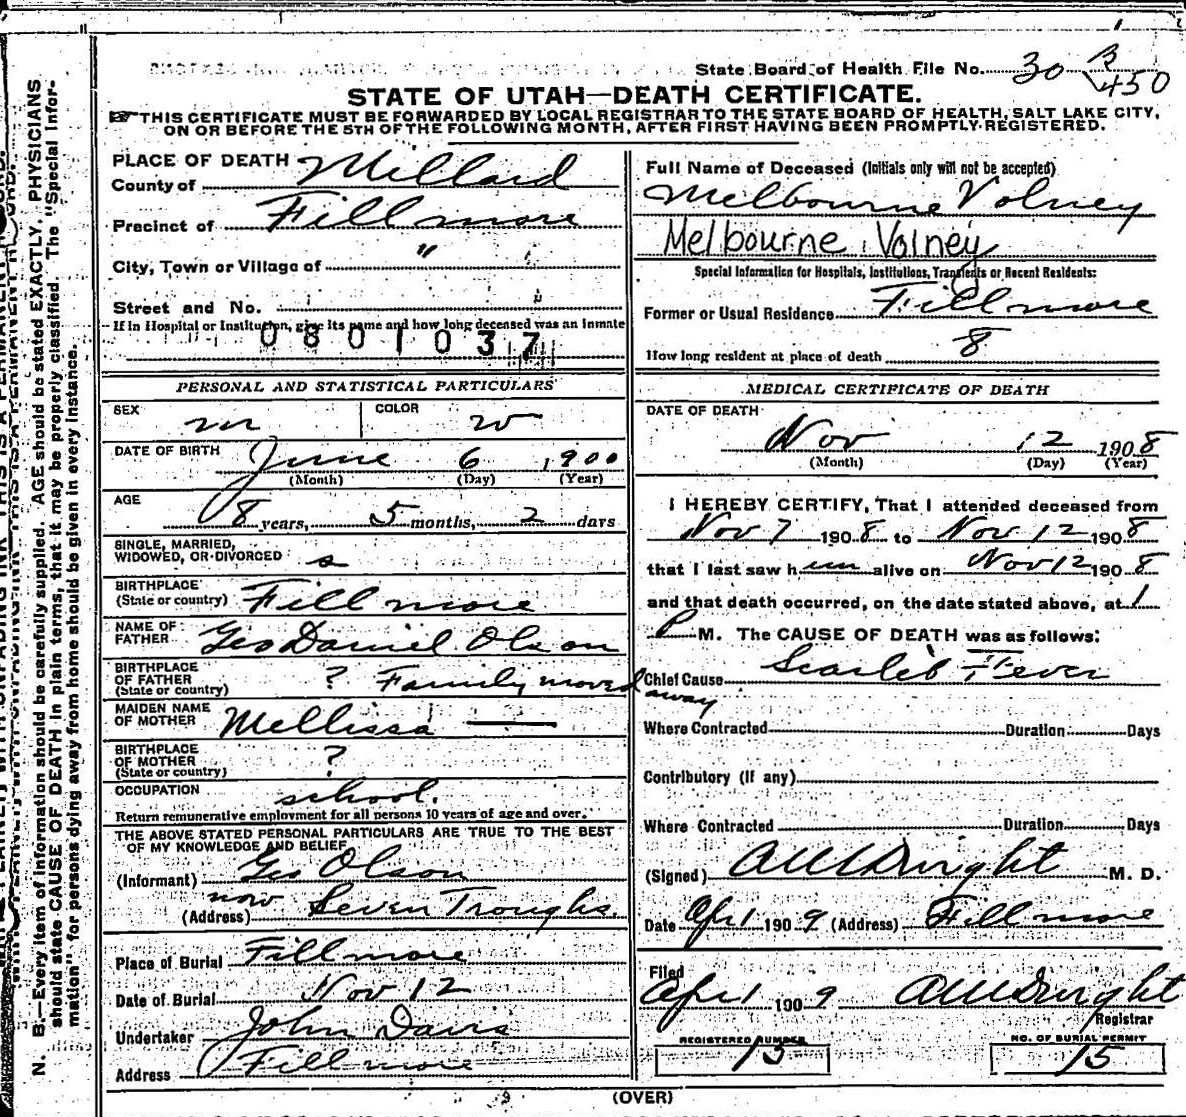 State Board of Health File No. 30 B
450
STATE OF UTAH—DEATH CERTIFICATE.
☞THIS CERTIFICATE MUST BE FORWARDED BY LOCAL REGISTRAR TO THE STATE BOARD OF HEALTH, SALT LAKE CITY,
ON OR BEFORE THE 5TH OF THE FOLLOWING MONTH, AFTER FIRST HAVING BEEN PROMPTLY REGISTERED.
PLACE OF DEATH
County of Millard
Precinct of Fillmore
City, Town or Village of "
Street and No.
If in Hospital or Institution, give its name and how long deceased was an inmate
0801037
PERSONAL AND STATISTICAL PARTICULARS
SEX m COLOR w
DATE OF BIRTH June 6, 1900
(Month) (Day) (Year)
AGE 8 years, 5 months, 2 days
SINGLE, MARRIED,
WIDOWED, OR DIVORCED s
BIRTHPLACE
(State or country) Fillmore
NAME OF
FATHER Geo Daniel Olson
BIRTHPLACE
OF FATHER
(State or country) ? Family moved away
MAIDEN NAME
OF MOTHER Mellissa ——
BIRTHPLACE
OF MOTHER
(State or country) ?
OCCUPATION school.
Return remunerative employment for all persons 10 years of age and over.
THE ABOVE STATED PERSONAL PARTICULARS ARE TRUE TO THE BEST
OF MY KNOWLEDGE AND BELIEF
(Informant) Geo Olson
(Address) now Seven Troughs.
Place of Burial Fillmore
Date of Burial Nov 12
Undertaker John Davis
Address Fillmore
Full Name of Deceased (Initials only will not be accepted)
Melbourne Volney
Melbourne Volney
Special Information for Hospitals, Institutions, Transients or Recent Residents:
Former or Usual Residence Fillmore
How long resident at place of death 8
MEDICAL CERTIFICATE OF DEATH
DATE OF DEATH
Nov 12 1908
(Month) (Day) (Year)
I HEREBY CERTIFY, That I attended deceased from
Nov 7 1908 to Nov 12 1908
that I last saw him alive on Nov 12 1908
and that death occurred, on the date stated above, at 1
P M. The CAUSE OF DEATH was as follows:
Chief Cause Scarlet Fever
Where Contracted Duration Days
Contributory (if any)
Where Contracted Duration Days
(Signed) M. D.
Date Apr 1 1909 (Address) Fillmore
Filed
Apr 1 1909
Registrar
REGISTERED NUMBER
13
NO. OF BURIAL PERMIT
15
(OVER)
N. B.—Every item of information should be carefully supplied. AGE should be stated EXACTLY. PHYSICIANS
should state CAUSE OF DEATH in plain terms, that it may be properly classified. The "Special Infor-
mation" for persons dying away from home should be given in every instance.